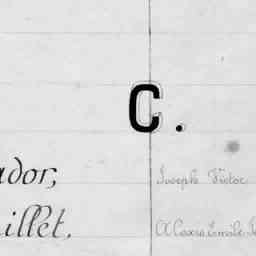 C.
ador, Joseph Victor
illet, Alexis Emile